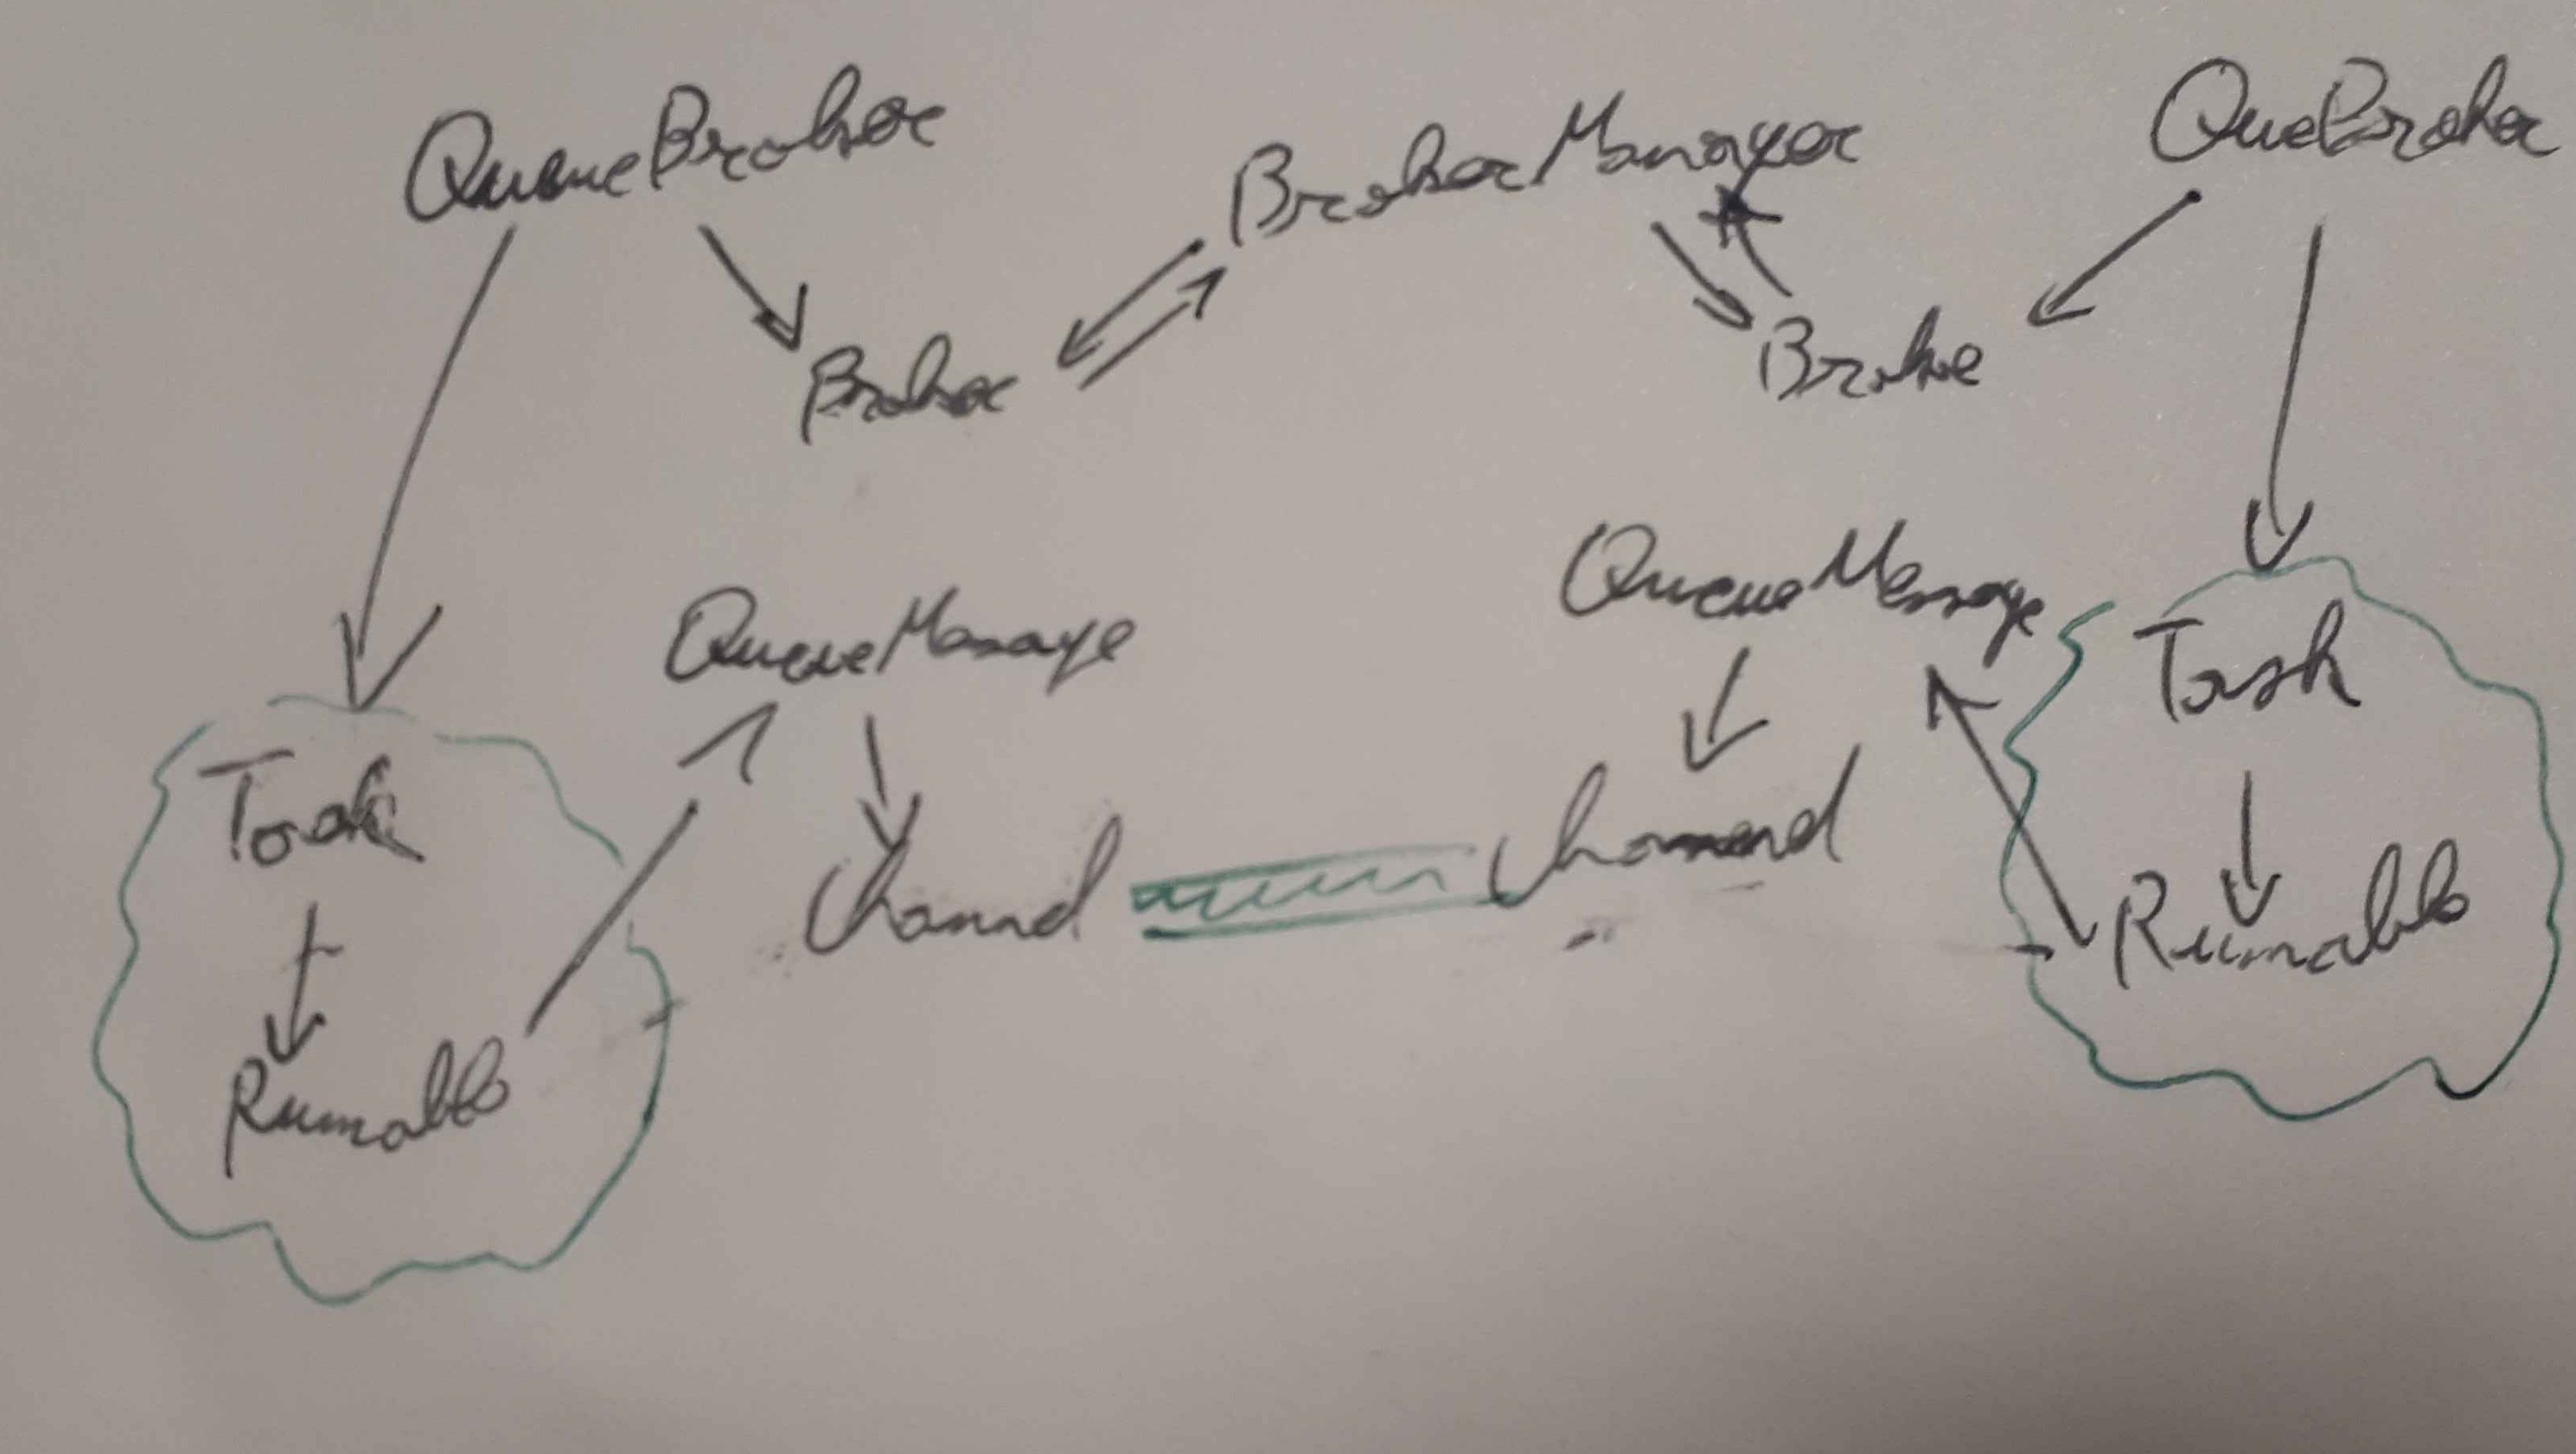 QueueBroker
BrokerManager
QueBroker
Broker
Broke
QueueMessage
QueueMessage
Task
Task
Channel
Channel
Runnable
Runnable